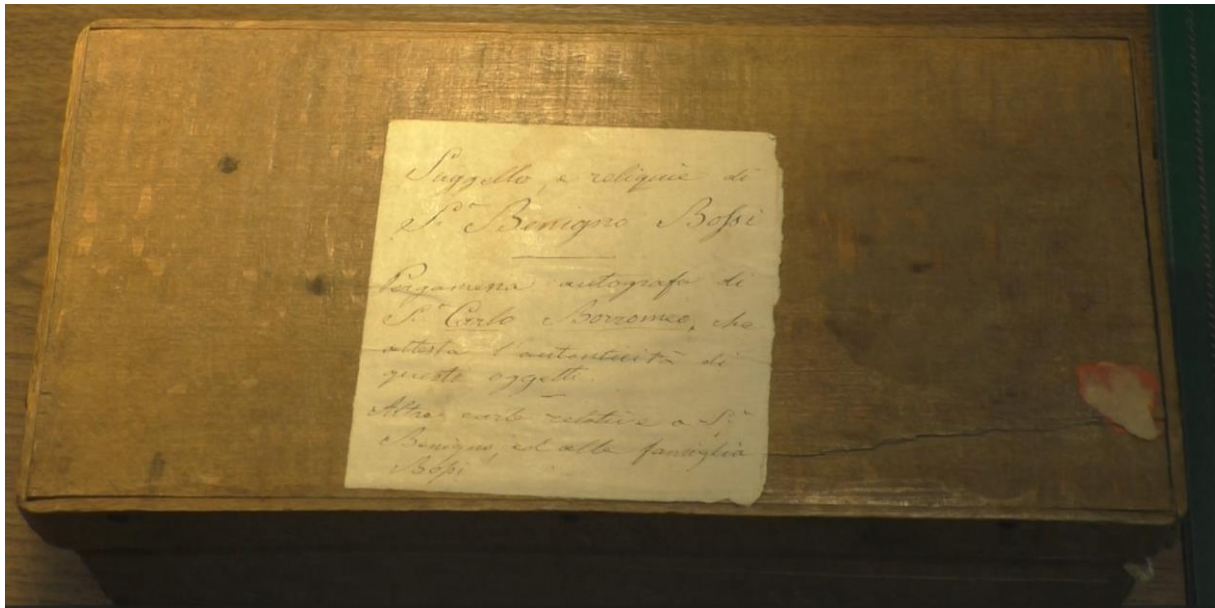 Suggello, e reliquie di
S.ⁿ Benigno Bossi
Pergamena autografa di
S.ⁿ Carlo Borromeo, che
attesta l'autenticità di
questi oggetti.
Altre carte relative a S.ⁿ
Benigno, ed alla famiglia
Bossi